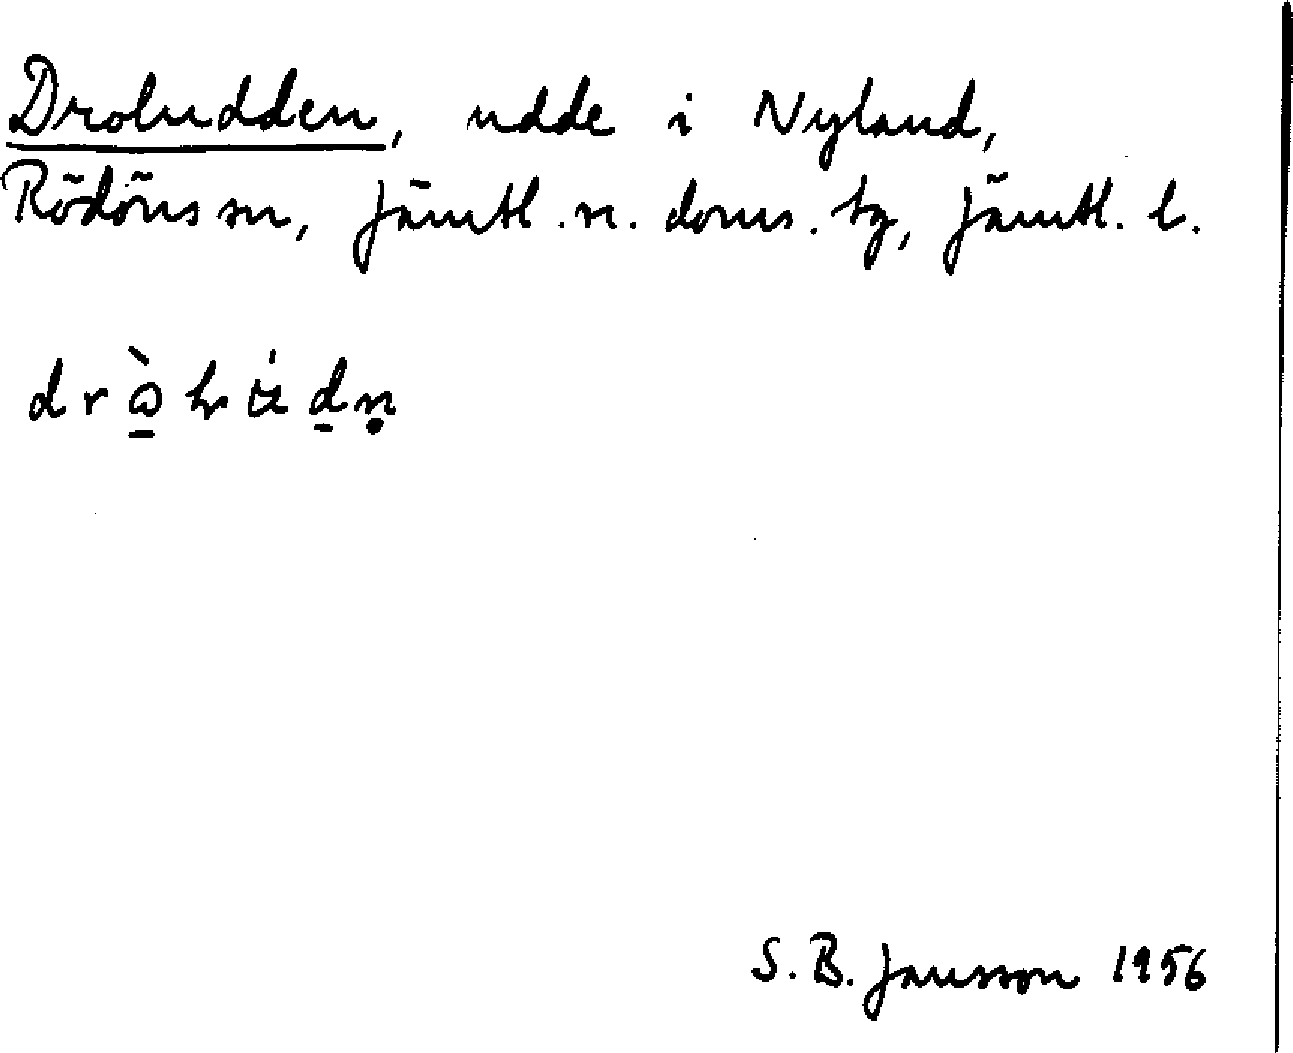 Droludden, udde i Nyland,
Rödöns sn, Jämtl. n. doms. tg, Jämtl. l.
S. B. Jansson 1956